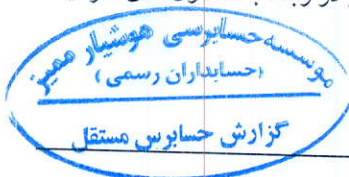 موسسه حسابرسی هوشیار ممیز
(حسابداران رسمی)
گزارش حسابرس مستقل